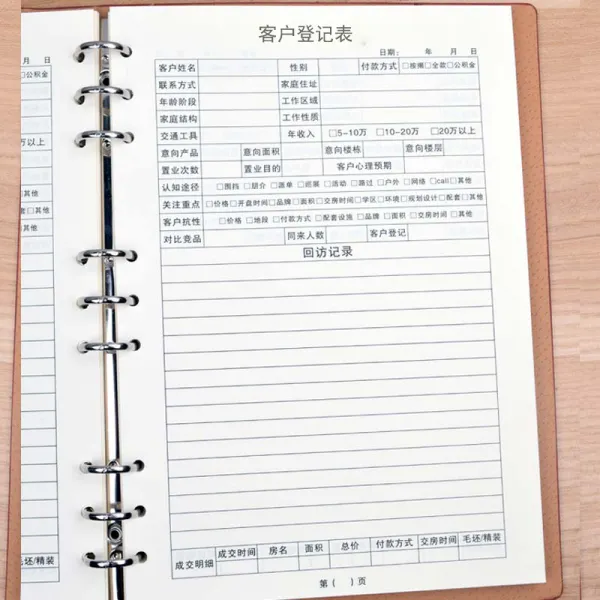 月 日
□公积金
万以上
□其他
套□其他
□其他
毛坯/精装
客户登记表
日期: 年 月 日
客户姓名 性别 付款方式 □按揭□全款□公积金
联系方式 家庭住址
年龄阶段 工作区域
家庭结构 工作性质
交通工具 年收入 □5-10万 □10-20万 □20万以上
意向产品 意向面积 意向楼栋 意向楼层
置业次数 置业目的 客户心理预期
认知途径 □围挡 □朋介 □派单 □巡展 □活动 □路过 □户外 □网络 □call□其他
关注重点 □价格□开盘时间□品牌□面积□交房时间□学区□环境□规划设计□配套□其他
客户抗性 □价格 □地段 □付款方式 □配套设施 □品牌 □面积 □交房时间 □其他
对比竞品 同来人数 客户登记
回访记录
成交明细 成交时间 房名 面积 总价 付款方式 交房时间 毛坯/精装
第( )页